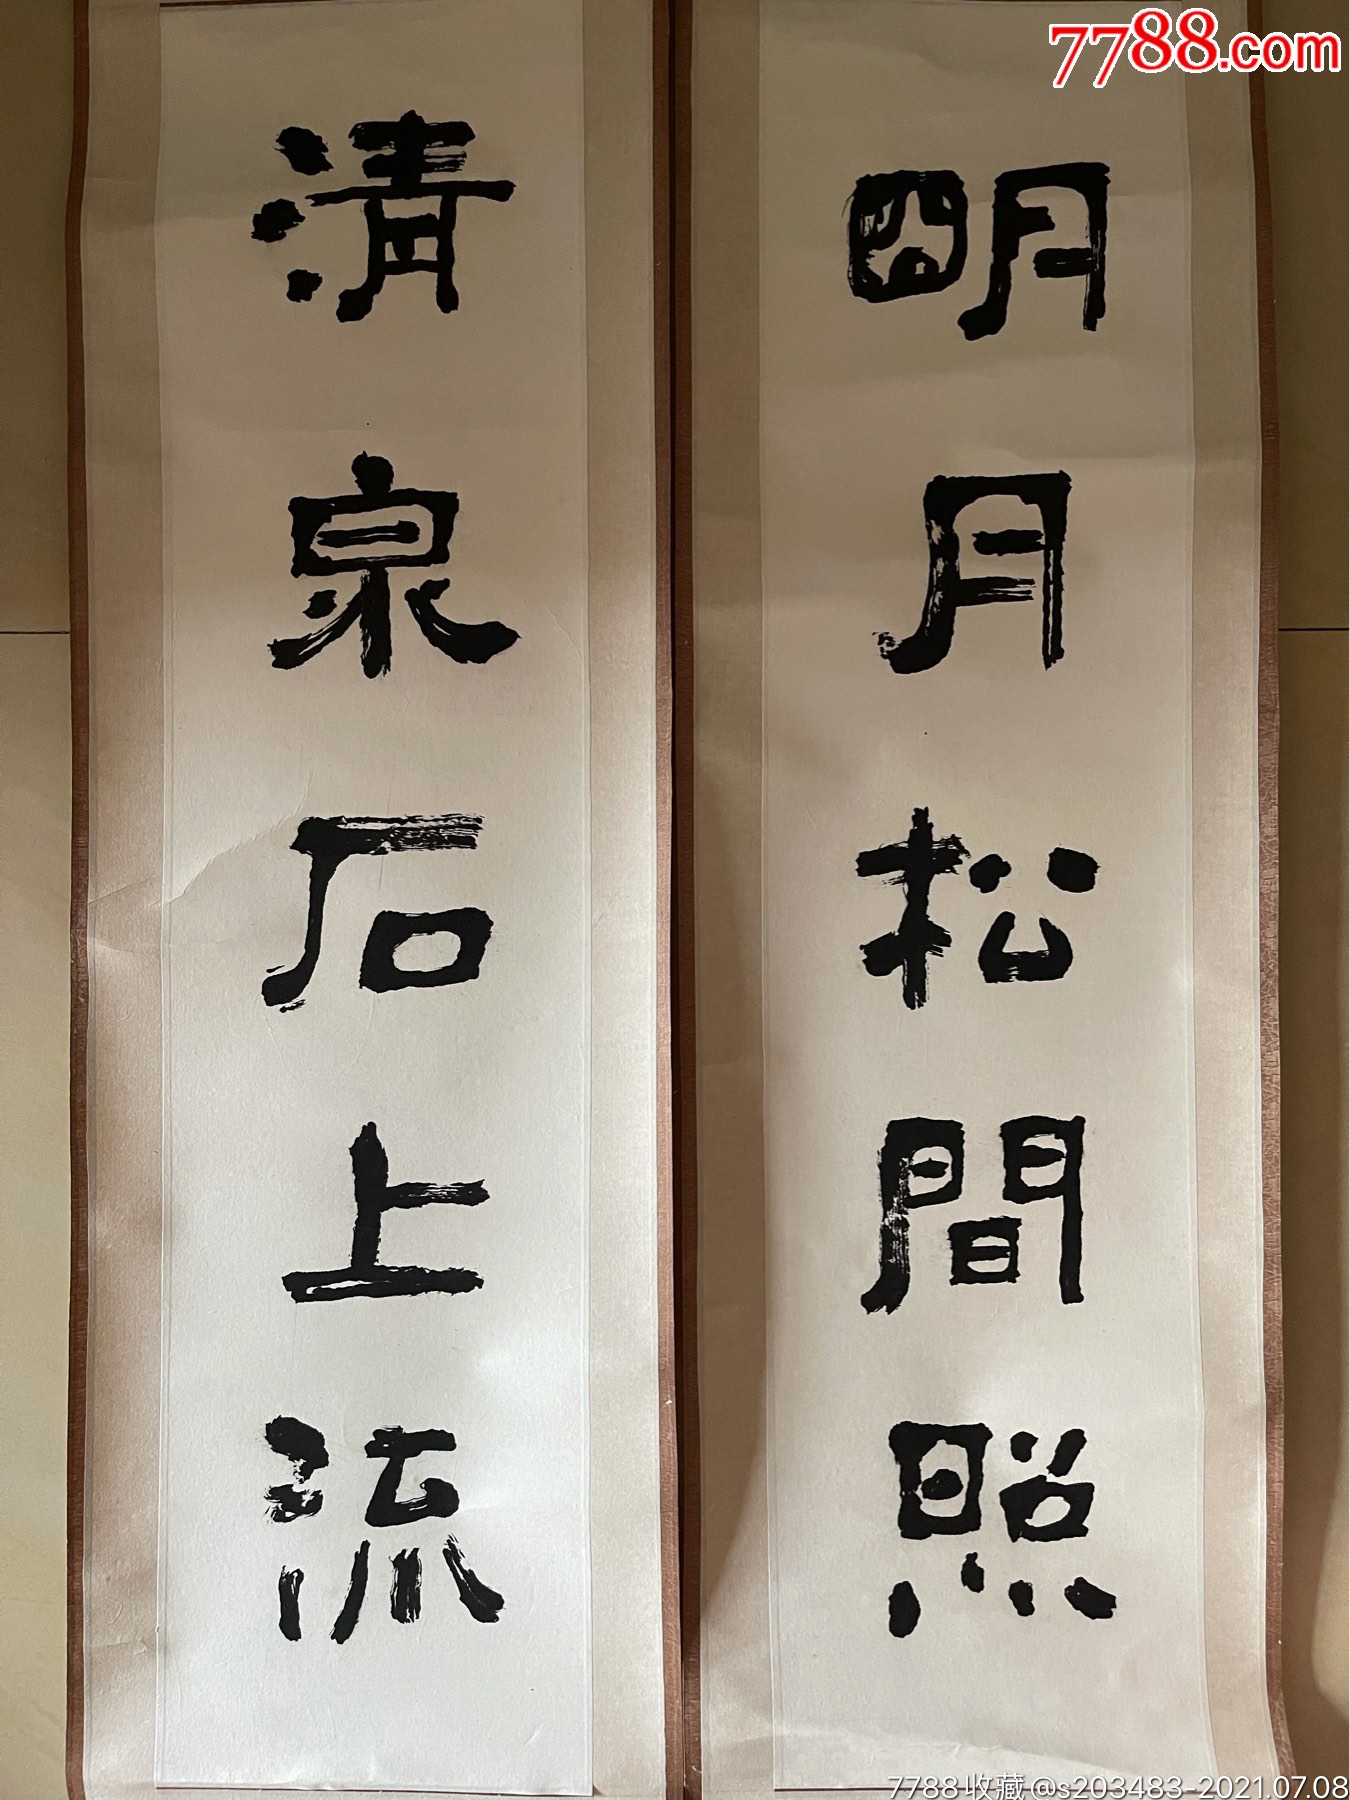 7788.com
明月松間照
清泉石上流
7788收藏@s203483-2021.07.08